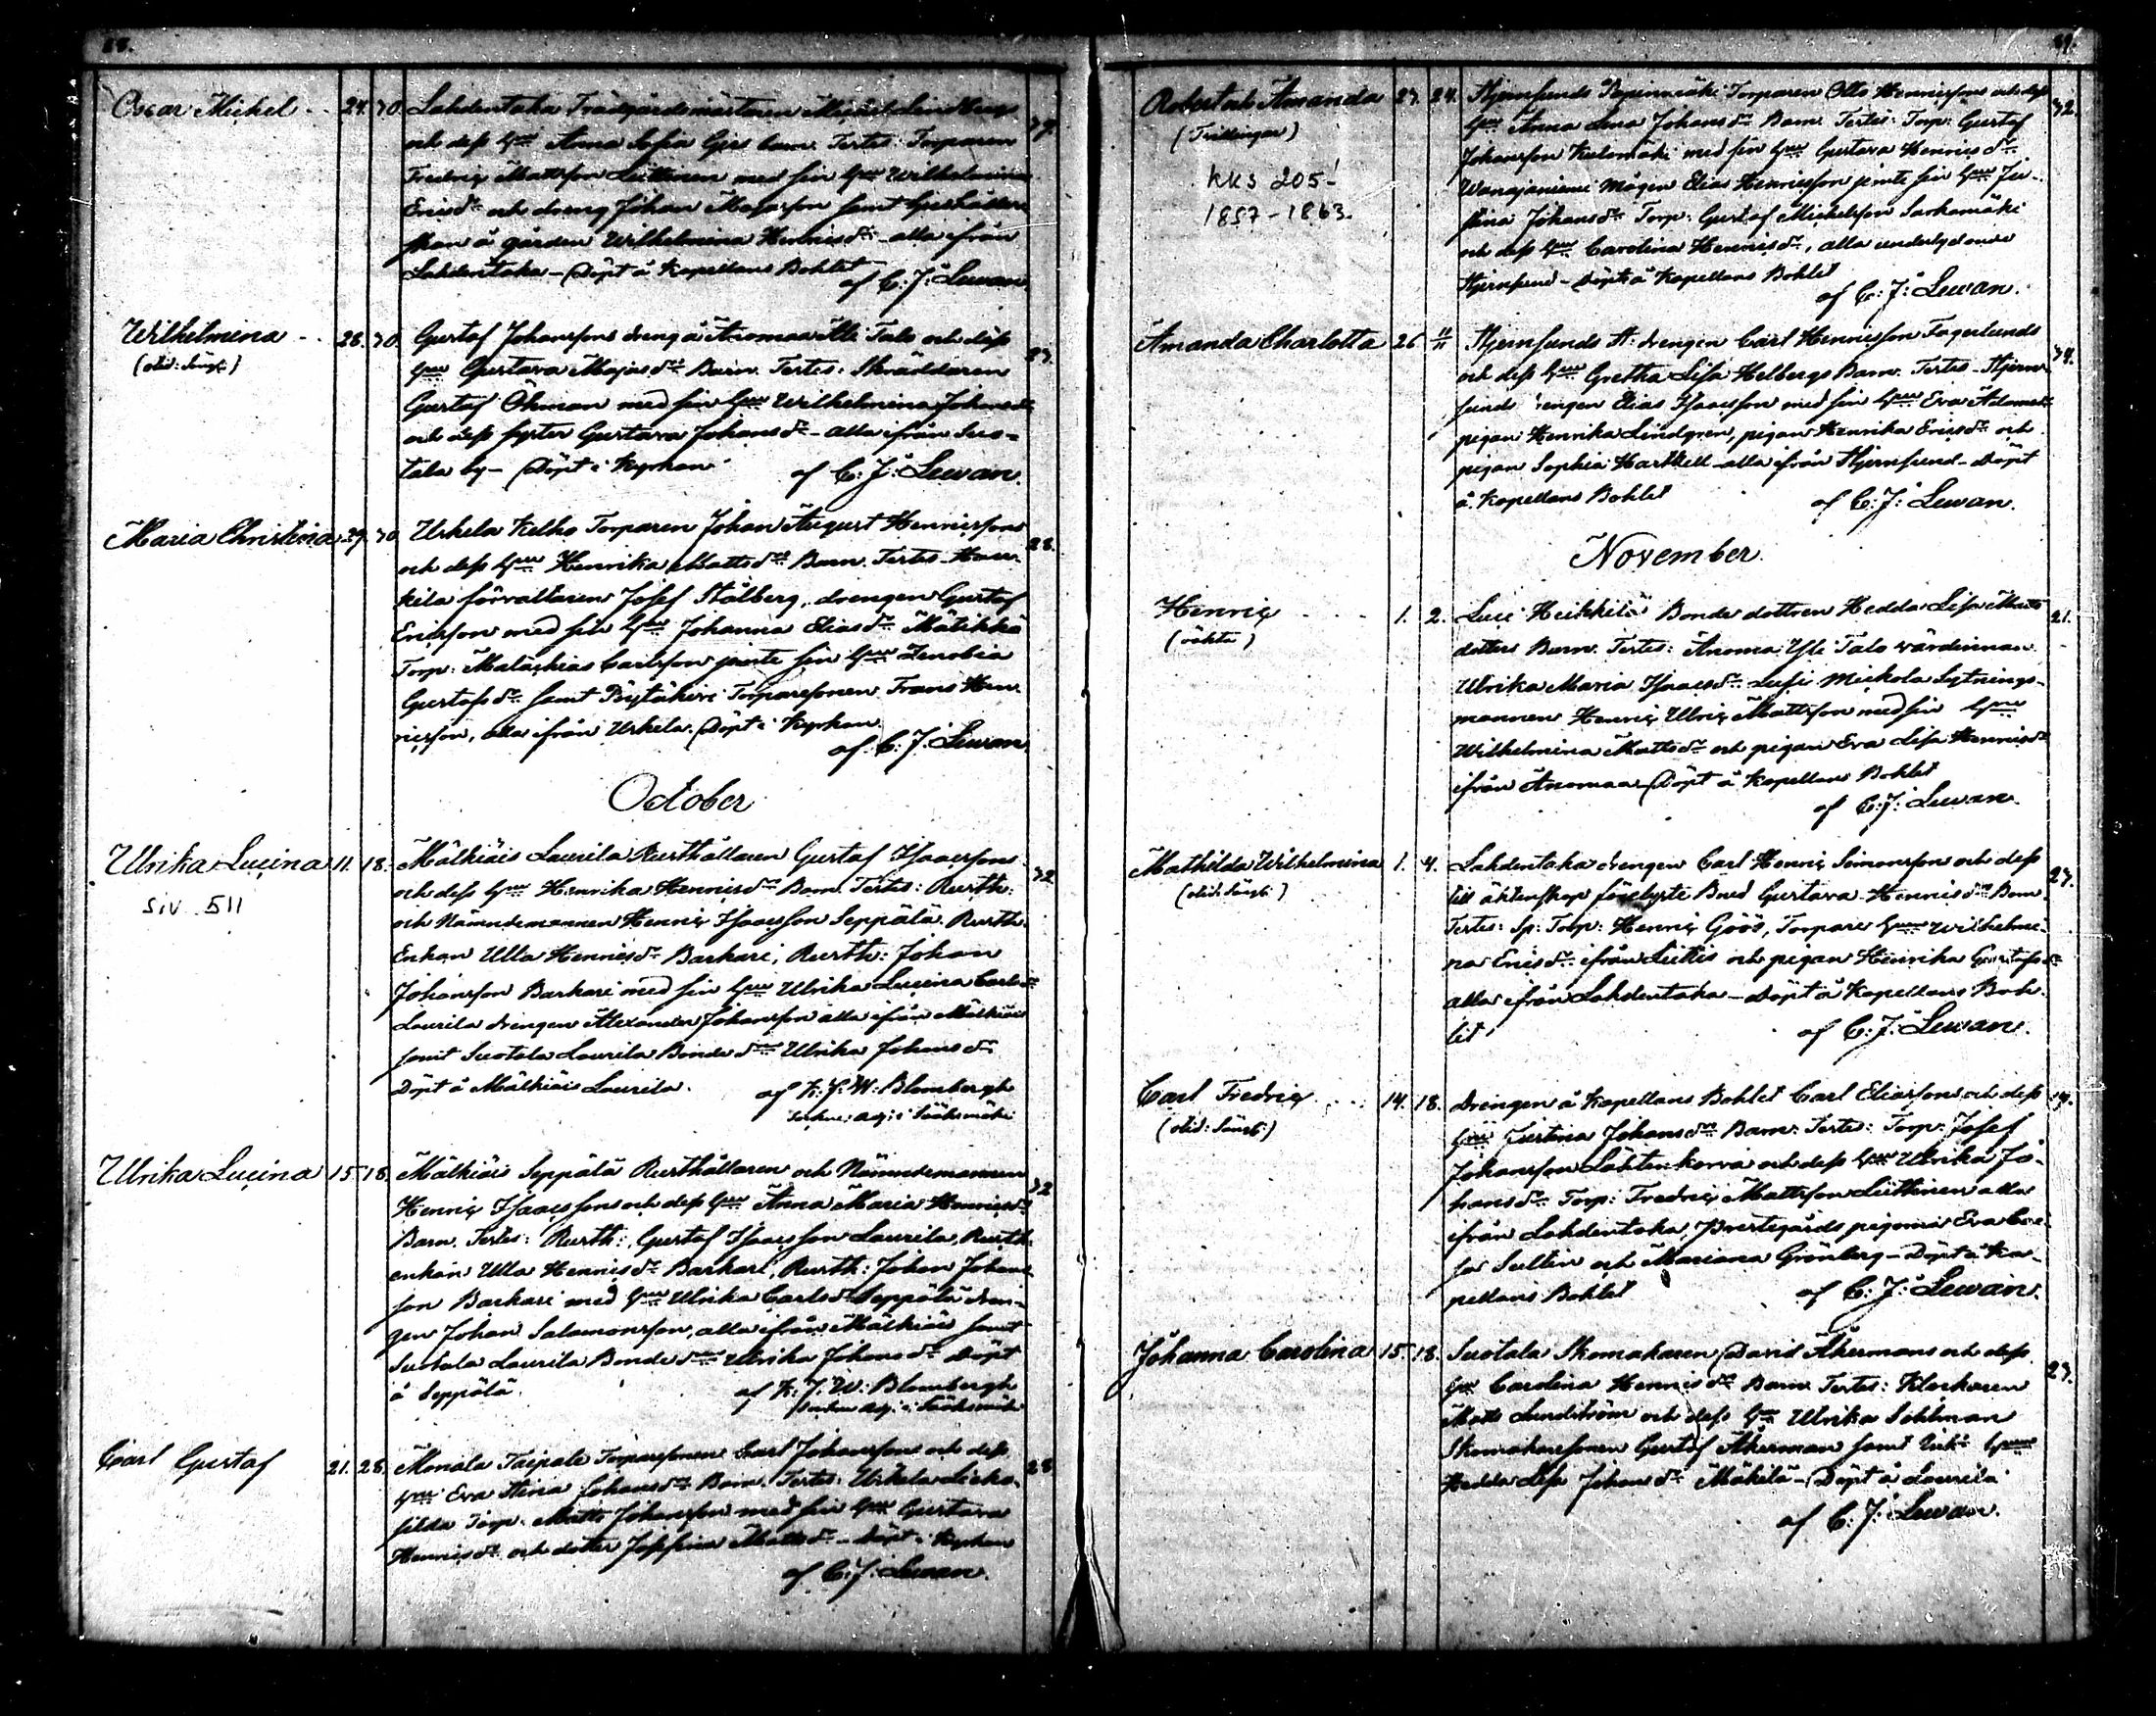 Oscar Michel 24. 30. Lahdentaka Trädgårdsmästaren Michel Lindbergs
och dess hustru Anna Sofia Girs barn. Testes: Torparen
Fredriç Mattsson Liittinen med sin hustru Wilhelmina
Ericsdr och dreng Johan Majasson samt
å gården Wilhelmina Henricsdr alla ifrån
Lahdentaka – Döpt å Kapellans Bohlet
af C: J: Lewan.
Wilhelmina 28. 30. Gustaf Johanssons dreng å Anomaa Ali Talo och dess
(olid: Sängh)
hustru Gustava Majasdr Barn. Testes: Skräddaren
27.
Gustaf Öhman med sin hustru Wilhelmina Johansdr
och dess syster Gustava Johansdr – alla ifrån Suo-
tala by – Döpt i Kyrkan
af C: J: Lewan.
Maria Christina 29. 30. Urhela Kelho Torparen Johan August Henricssons
28.
och dess hustru Henrika Mattsdr Barn. Testes
kila förvaltaren Josef Stålberg, drengen Gustaf
Ericsson med sin hustru Johanna Eliasdr Mätikkä
Torp: Malachias Carlsson jemte sin hustru Zenobia
Gustafsdr samt Pöytäkivi Torparesonen Frans Hen-
ricsson, alla ifrån Urhela. Döpt i Kyrkan
af C: J: Lewan
October
Ulrika Luçina 11. 18. Mälkiäis Laurila Rusthållaren Gustaf Isaacssons
32
och dess hustru Henrika Henricsdr Barn. Testes: Rusth:
siv. 511
och Nämndemannen Henriç Isaacsson Seppälä. Rusth:
Enkan Ulla Henricsdr Barkari, Rusth: Johan
Johansson Barkari med sin hustru Ulrika Luçina Carlsdr
Laurila drengen Alexander Johansson alla ifrån Mälkiäis
samt Suotala Laurila Bonde dr Ulrika Johansdr
Döpt å Mälkiäis Laurila.
af K: J: W: Blombergh
adj: i Sääksmäki
Ulrika Luçina 15. 18. Mälkiäis Seppälä Rusthållaren och Nämndemannen
32
Henriç Isaacssons och dess hustru Anna Maria Henricsdr
Barn. Testes: Rusth: Gustaf Isaacsson Laurila, Rusth:
enkan Ulla Henricsdr Barkari, Rusth: Johan Johans-
son Barkari med hustru Ulrika Carlsdr Seppälä dren-
gen Johan Salomonsson, alla ifrån Mälkiäis samt
Suotala Laurila Bonde dr Ulrika Johansdr Döpt
å Seppälä.
af K: J: W: Blombergh
adj: i Sääksmäki
Carl Gustaf 21. 28. Monala Taipale Torparesonen Carl Johanssons och dess
28
hustru Eva Stina Johansdr Barn. Testes: Urhela
Torp. Matts Johansson med sin hustru Gustava
Henricsdr och dotter Josefina Mattsdr – Döpt i Kyrkan
af C: J: Lewan.
Robert och Amanda 23. 24. Hjernsunds Torparen Otto Henricssons och dess
32.
(Tvillingar)
hustru Anna Lena Johansdr Barn. Testes: Torp: Gustaf
Johansson Kulomäki med sin hustru Gustava Henricsdr
KKs 205-
Wanajaniemi mågen Elias Henricsson jemte sin hustru Ju-
1857-1863.
stina Johansdr Torp: Gustaf Michelsson Sarkamäki
och dess hustru Carolina Henricsdr, alla underlydande
Hjernsund – Döpt å Kapellans Bohlet
af C: J: Lewan.
Amanda Charlotta 26 Hjernsunds St: drengen Carl Henricsson Fagerlunds
och dess hustru Gretha Lisa Helbergs Barn. Testes – Hjern-
sunds drengen Elias Isaacsson med sin hustru Eva Adamsdr
pigan Henrika Lindgren, pigan Henrika Ericsdr och
pigan Sophia Hartkell – alla ifrån Hjernsund – Döpt
å Kapellans Bohlet
af C: J: Lewan.
November.
Henriç 1. 2. Suci Heikkilä Bonde dottren Hedda Lisa Matts
21.
(oäkta)
dotters Barn. Testes: Anoma Yli Talo värdinnan
Ulrika Maria Isaacsdr Mickola Sytnings-
mannen Henriç Ulriç Mattsson med sin hustru
Wilhelmina Mattsdr och pigan Eva Lisa Henricsdr
ifrån Anomaa – Döpt å Kapellans Bohlet
af C: J: Lewan.
Mathilda Wilhelmina 1. 4. Lahdentaka drengen Carl Henriç Simonssons och dess
27.
(olid: Sängh:)
till äktenskap förelyste Brud Gustava Henricsdr Barn
Testes: Sp: Torp: Henriç Göös, Torpare hustru Wilhelmi-
na Ericsdr ifrån Liittis och pigan Henrika Gustafsdr
alla ifrån Lahdentaka – Döpt å Kapellans Boh-
let
af C: J: Lewan.
Carl Fredriç 14. 18. Drengen å Kapellans Bohlet Carl Eliassons och dess
(olid: Sängh:)
hustru Justina Johansdr Barn: Testes: Torp: Josef
Johansson Lähteenkorva och dess hustru Ulrika Jo-
hansdr Torp: Fredriç Mattsson Liittinen alla
ifrån Lahdentaka, Prestegårds pigorna Eva
Sultin och Mariana Grönberg – Döpt å Ka-
pellans Bohlet
af C: J: Lewan.
Johanna Carolina 15. 18. Suotala Skomakaren David Åkermans och dess
27.
hustru Carolina Henricsdr Barn. Testes: Klockaren
Matts Lundström och dess hustru Ulrika Sohlman
Skomakaresonen Gustaf Åkerman samt hustru
Hedda Lisa Johansdr Mäkilä – Döpt å Laurila
af C: J: Lewan.